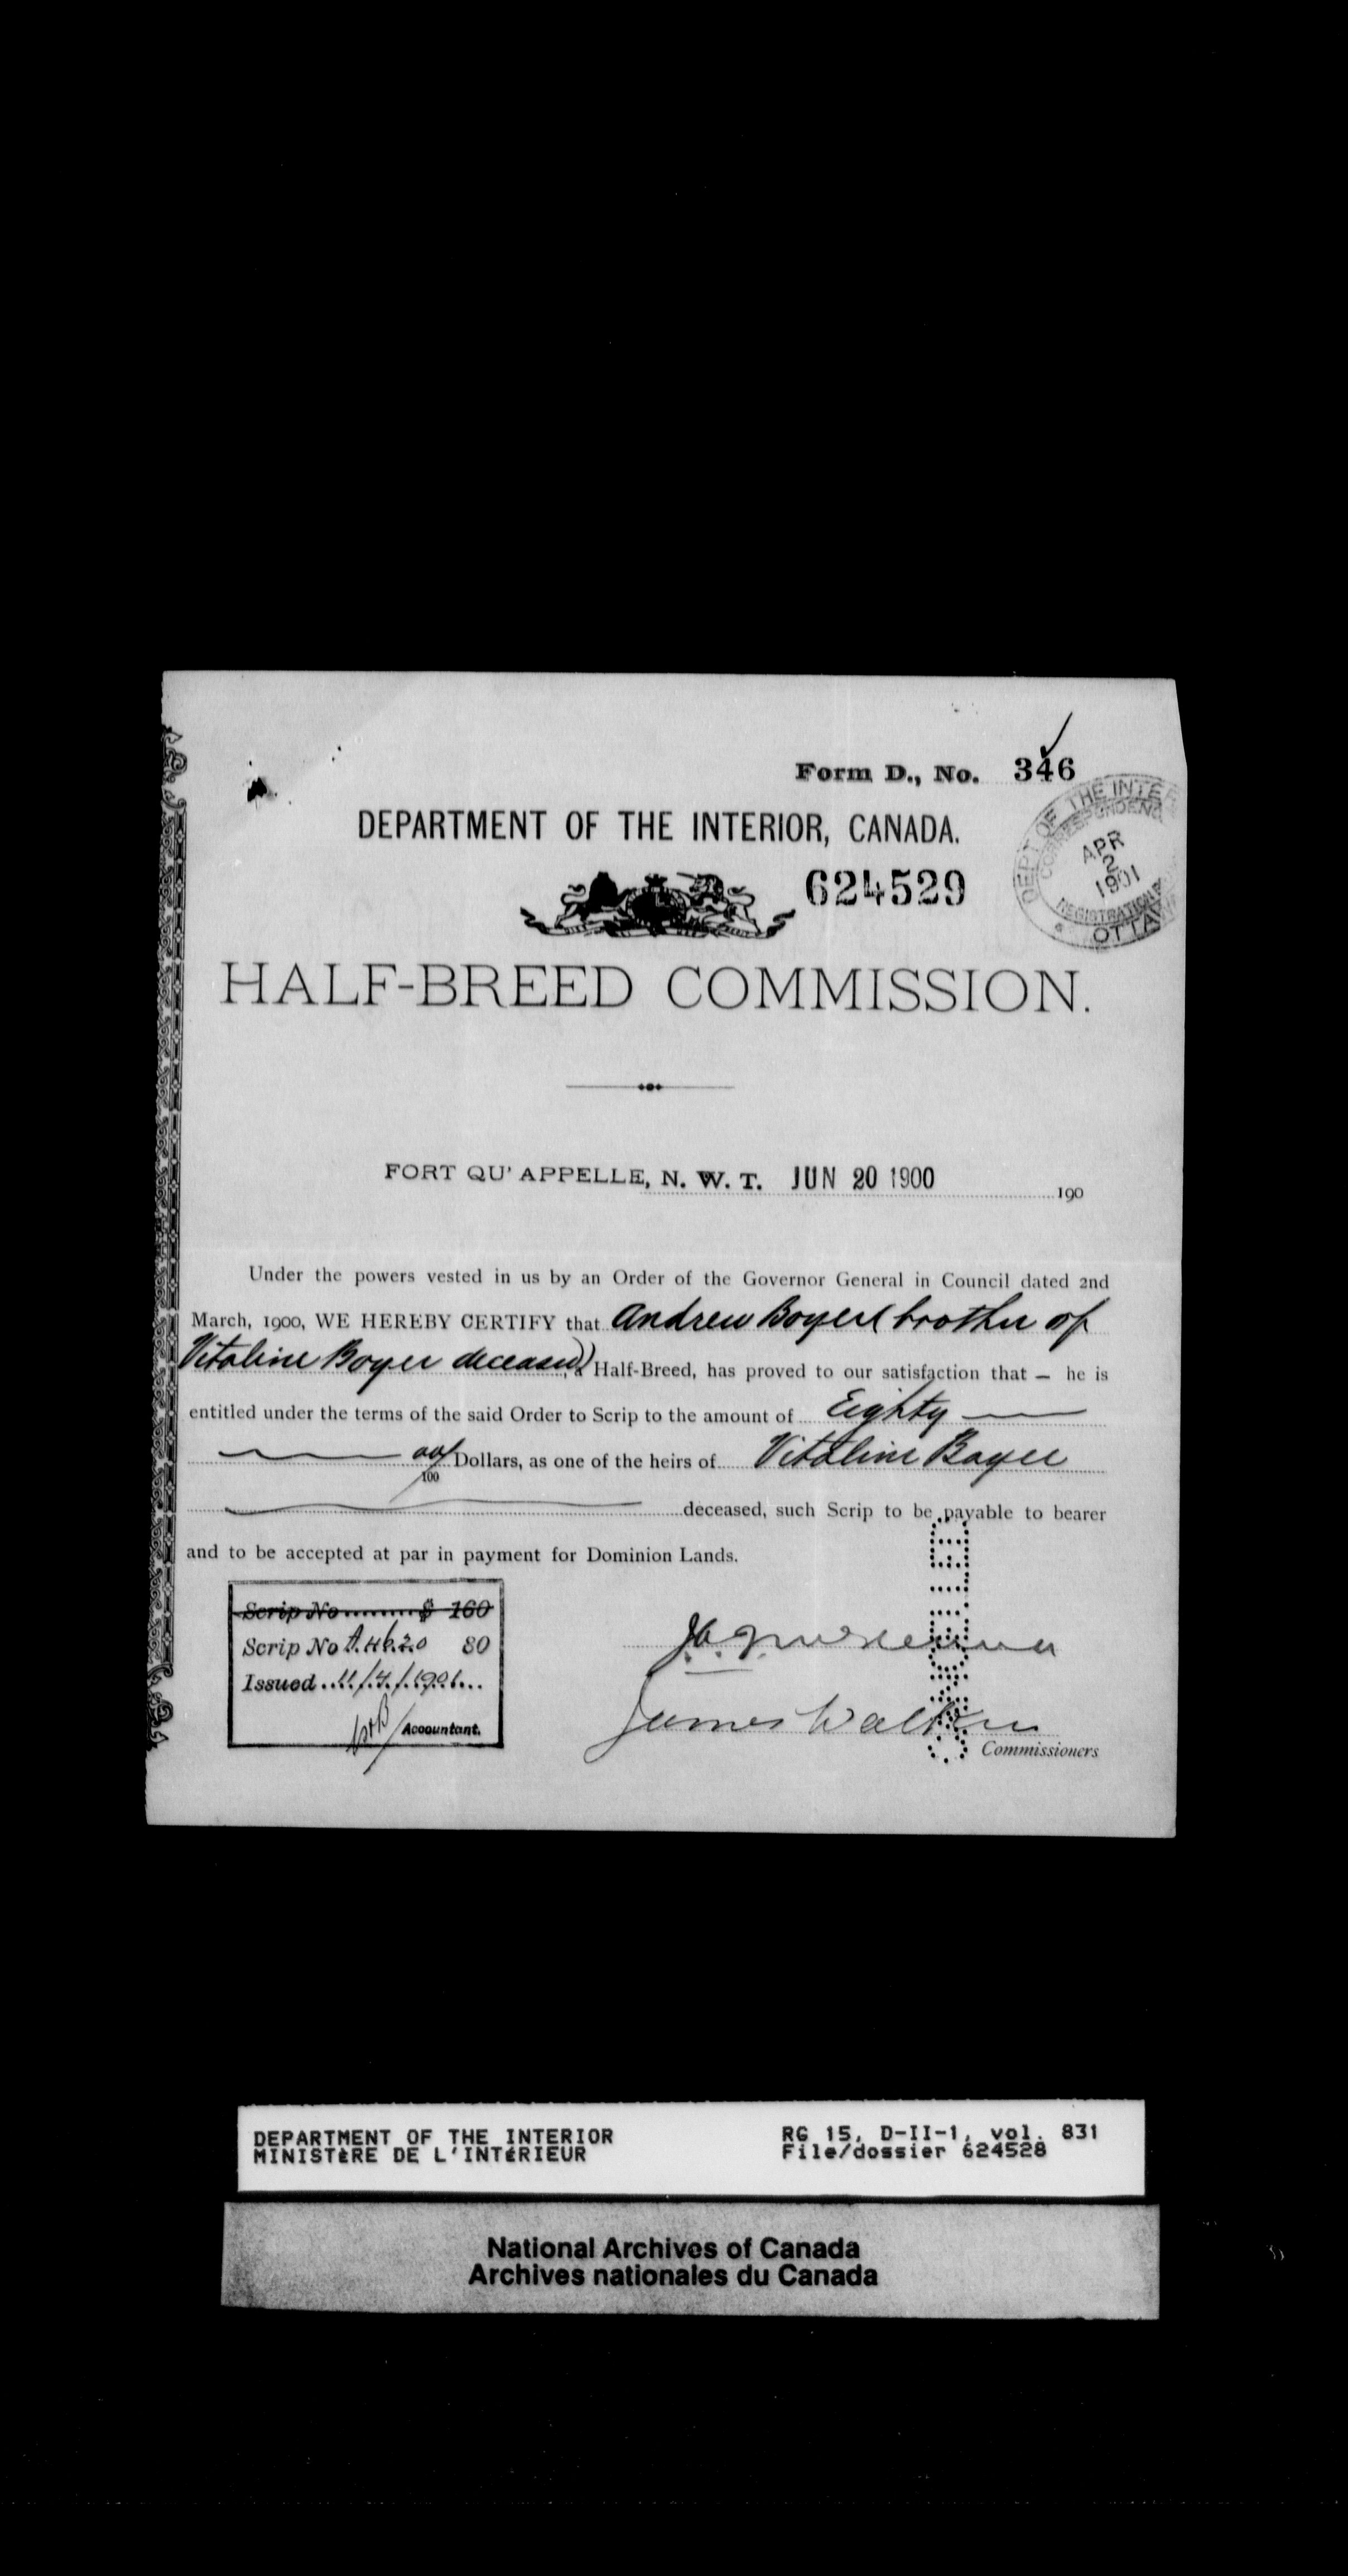 Form D., No. 346
DEPARTMENT OF THE INTERIOR, CANADA.
624529
DEPT OF THE INTE
CORRESPONDENC
APR
2
1901
REGISTRATION
OTTA
HALF-BREED COMMISSION.
FORT QU'APPELLE, N. W. T. JUN 20 1900 190
Under the powers vested in us by an Order of the Governor General in Council dated 2nd
March, 1900, WE HEREBY CERTIFY that Andrew Boyer (brother of
Vitaline Boyer deceased) a Half-Breed, has proved to our satisfaction that — he is
entitled under the terms of the said Order to Scrip to the amount of Eighty —
00/100 Dollars, as one of the heirs of Vitaline Boyer
deceased, such Scrip to be payable to bearer
and to be accepted at par in payment for Dominion Lands.
Scrip No ........ $ 160
Scrip No A.4620 80
Issued 11/4/1901
Accountant.
CANCELLED
James Walker
Commissioners
DEPARTMENT OF THE INTERIOR
MINISTÈRE DE L'INTÉRIEUR
RG 15, D-II-1, vol. 831
File/dossier 624528
National Archives of Canada
Archives nationales du Canada